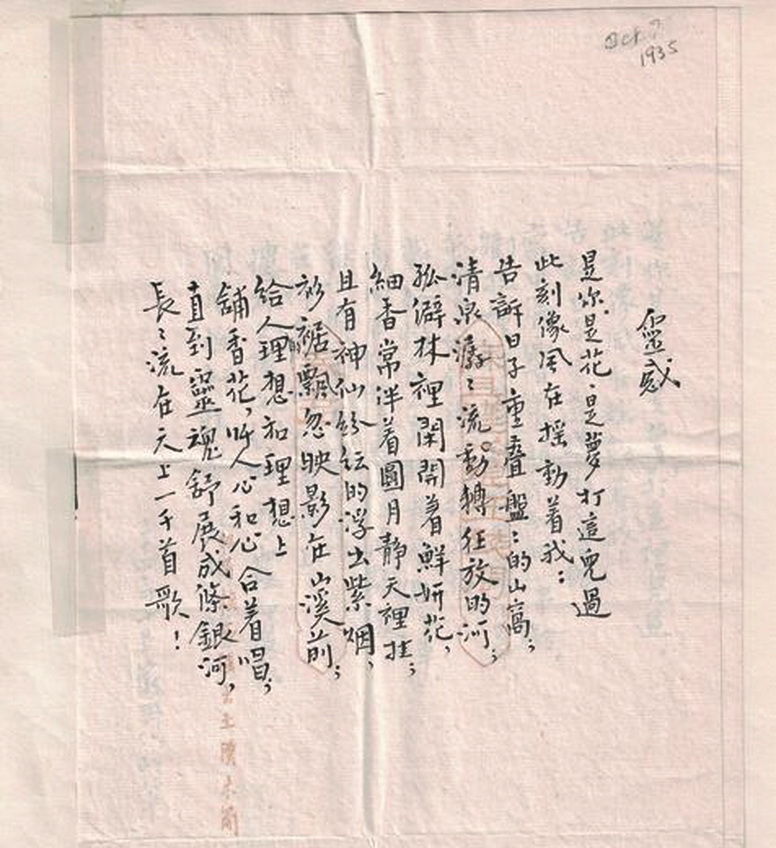 Oct. 7
1935
靈感
是你,是花,是夢打這兒過
此刻像風在搖動着我:
告訴日子重疊盤〻的山窩;
清泉潺〻流動轉狂放的河;
孤僻林裡閑開着鮮妍花,
細香常伴着圓月靜天裡掛;
且有神仙紛紜的浮出紫烟,
衫裾飄忽映影在山溪前;
給人的理想和理想上
舖香花,叫人心和心合着唱;
直到靈魂舒展成條銀河,
長〻流在天上一千首歌!